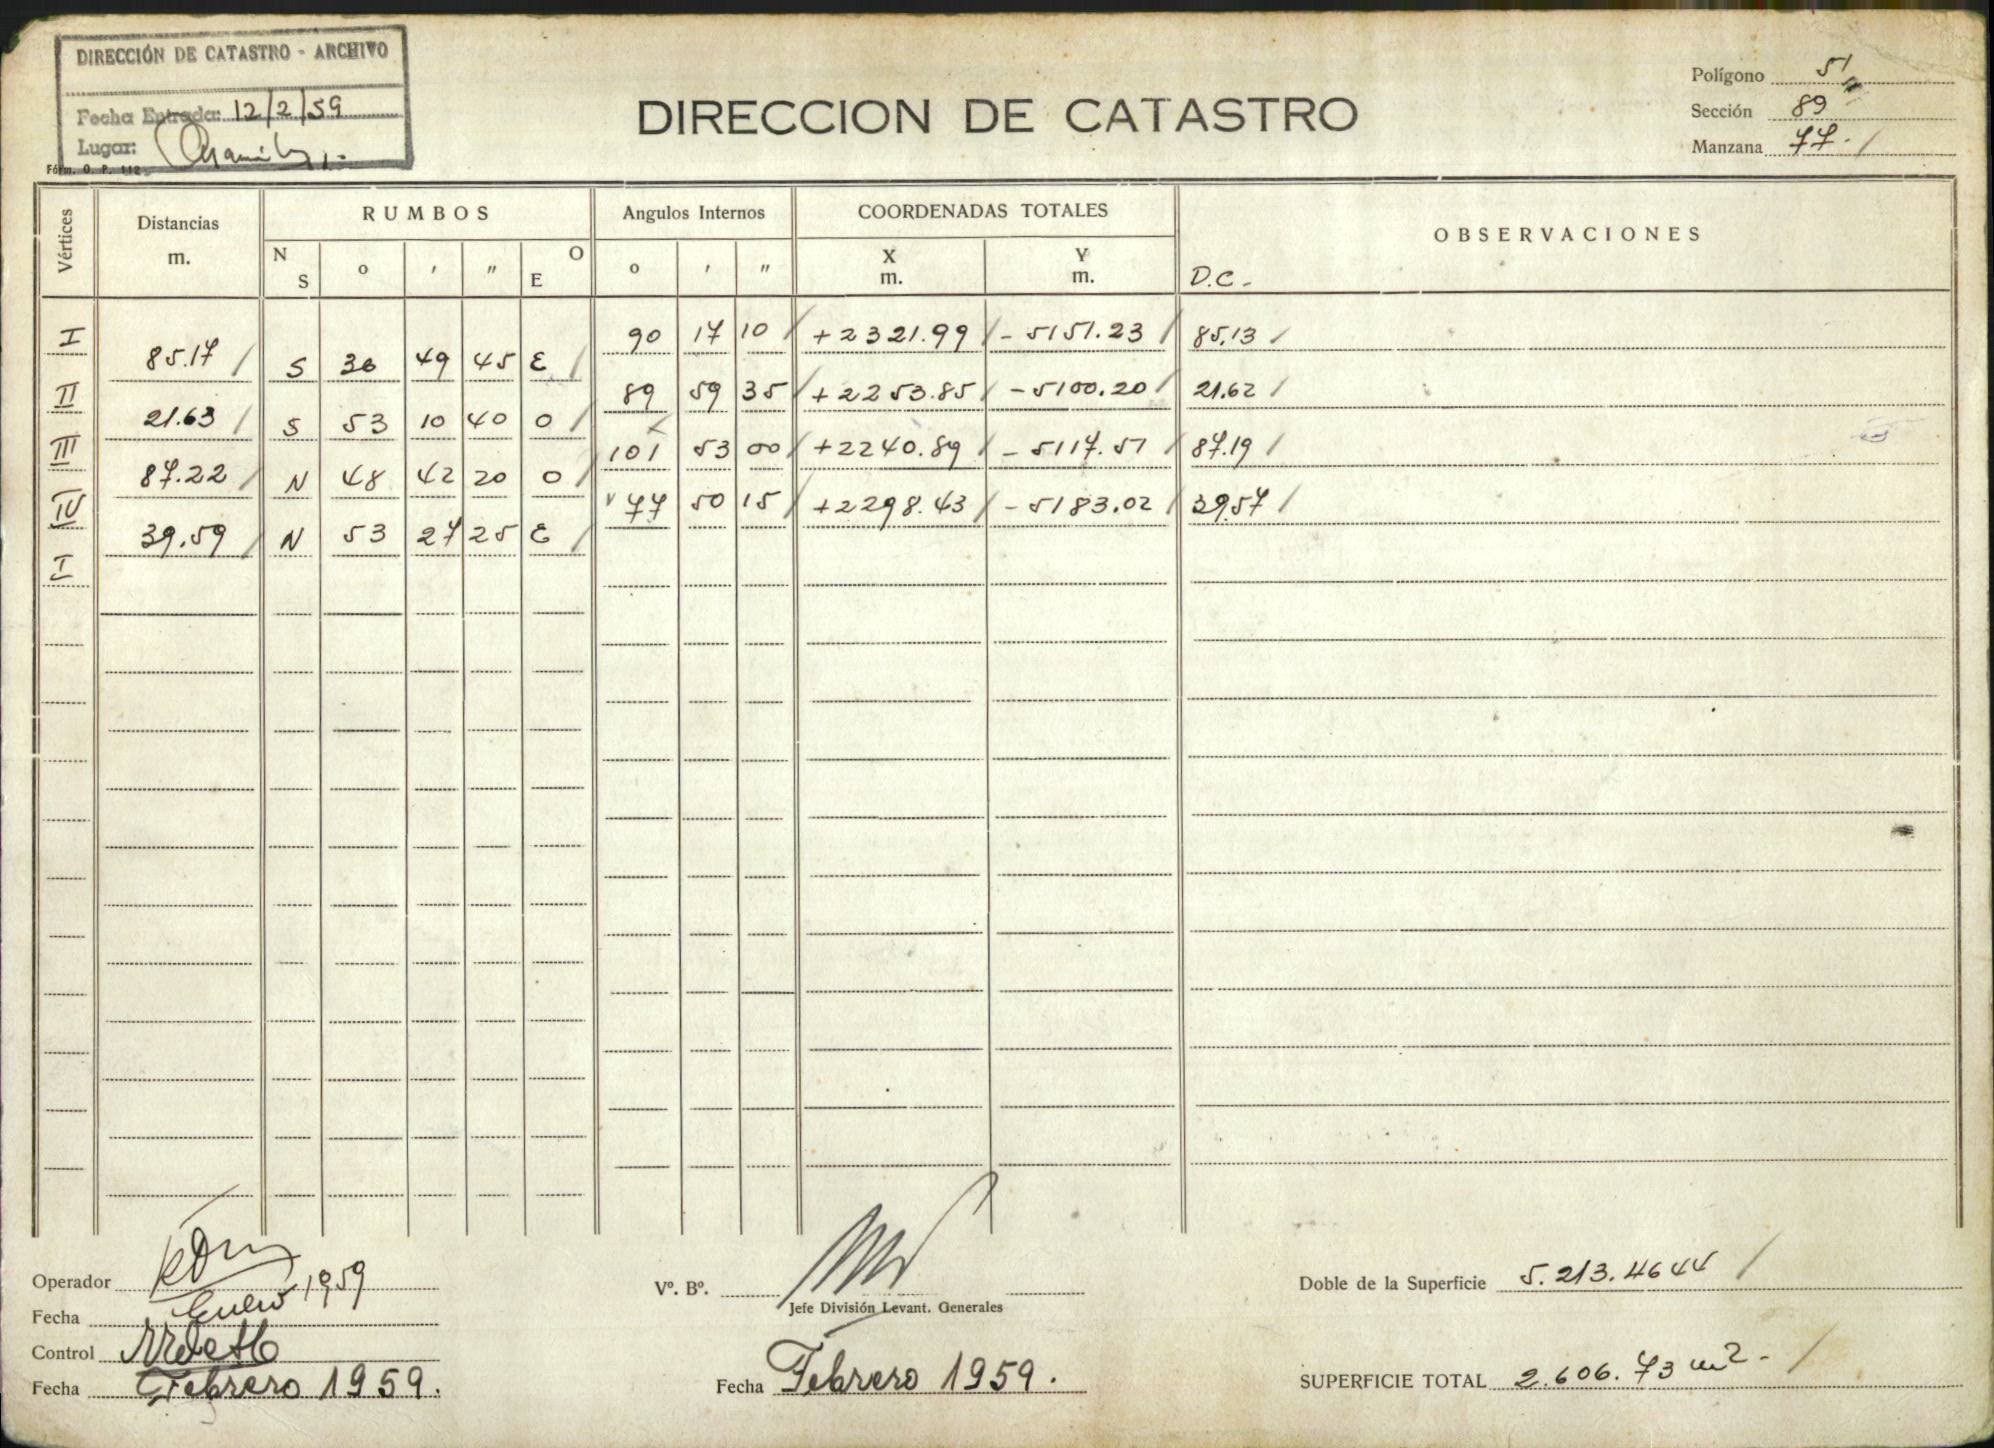 DIRECCIÓN DE CATASTRO - ARCHIVO
Fecha Entrada: 12/2/59
Lugar:
Fórm. O. P. 112
DIRECCION DE CATASTRO
Polígono 51
Sección 89
Manzana 77.
Vértices Distancias m. RUMBOS N S o ' " O E Angulos Internos o ' " COORDENADAS TOTALES X m. Y m. OBSERVACIONES
D.C.-
I 90 17 10 / +2321.99 / -5151.23 / 85.13 /
85.17 / S 36 49 45 E /
II 89 59 35 / +2253.85 / -5100.20 / 21.62 /
21.63 / S 53 10 40 O /
III 101 53 00 / +2240.89 / -5117.51 / 87.19 /
87.22 / N 48 42 20 O /
IV 77 50 15 / +2298.43 / -5183.02 / 39.57 /
39.59 / N 53 27 25 E /
I
Operador
Fecha Enero 1959
Control
Fecha Febrero 1959.
Vº. Bº.
Jefe División Levant. Generales
Fecha Febrero 1959.
Doble de la Superficie 5.213.4644 /
SUPERFICIE TOTAL 2.606.73 m2.- /